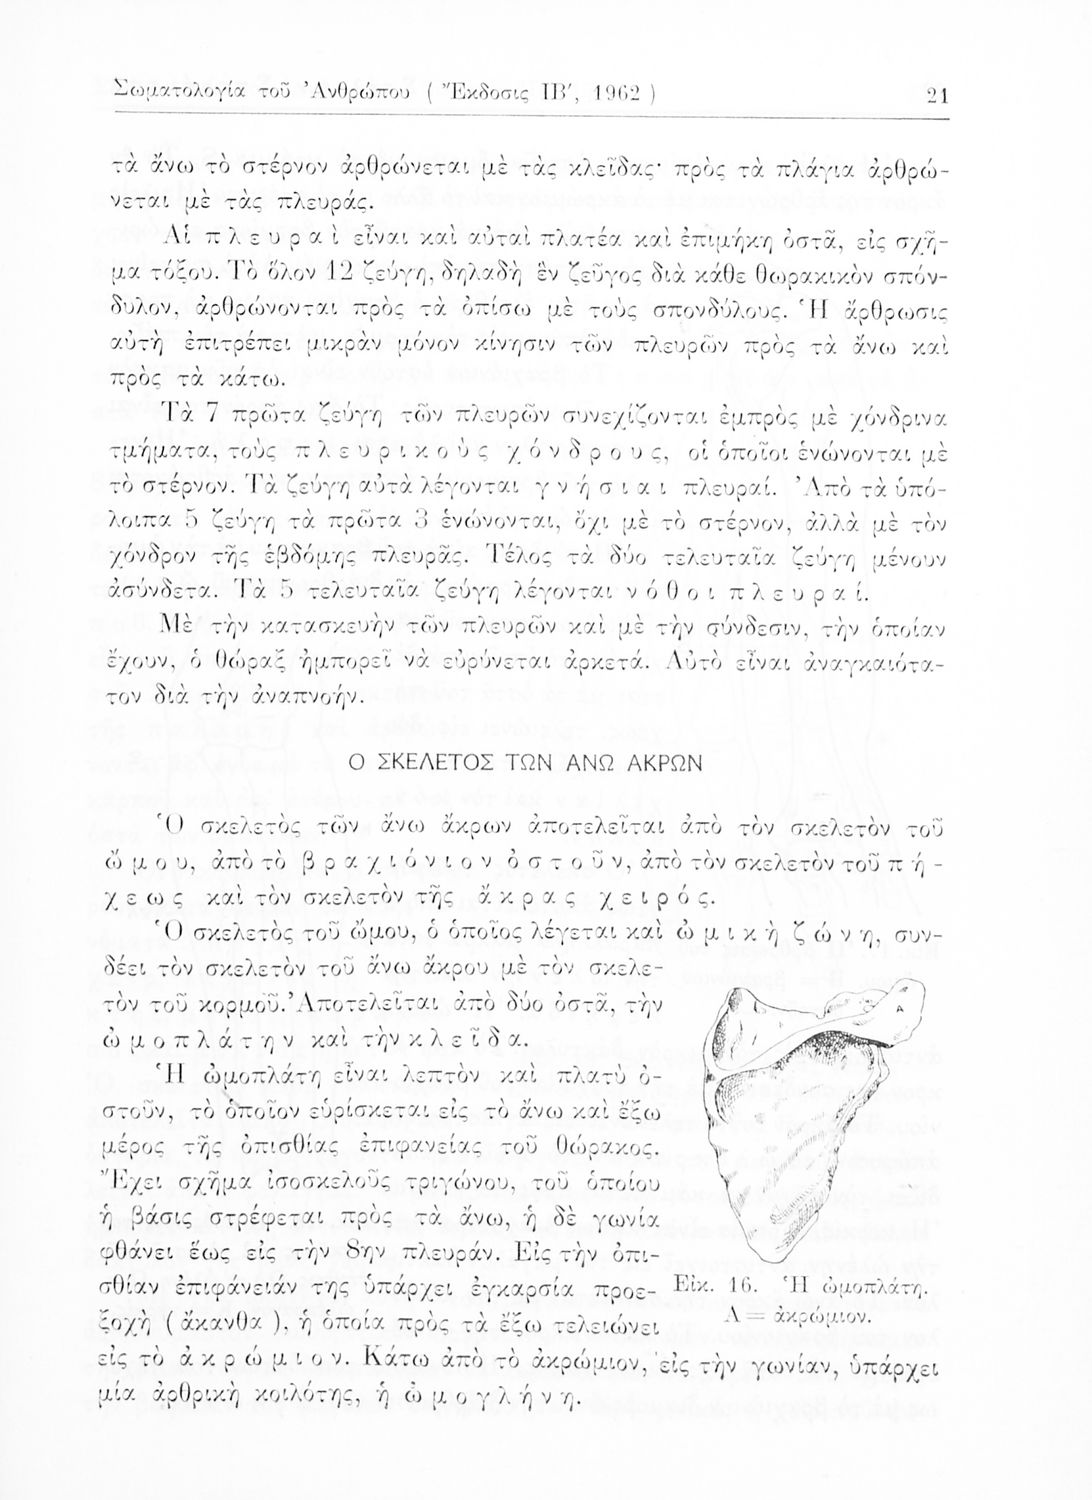 Σωματολογία τοῦ Ἀνθρώπου ( Ἔκδοσις ΙΒ′, 1962 ) 21
τὰ ἄνω τὸ στέρνον ἀρθρώνεται μὲ τὰς κλεῖδας· πρὸς τὰ πλάγια ἀρθρώ-
νεται μὲ τὰς πλευράς.
Αἱ π λ ε υ ρ α ὶ εἶναι καὶ αὐταὶ πλατέα καὶ ἐπιμήκη ὀστᾶ, εἰς σχῆ-
μα τόξου. Τὸ ὅλον 12 ζεύγη, δηλαδὴ ἓν ζεῦγος διὰ κάθε θωρακικὸν σπόν-
δυλον, ἀρθρώνονται πρὸς τὰ ὀπίσω μὲ τοὺς σπονδύλους. Ἡ ἄρθρωσις
αὐτὴ ἐπιτρέπει μικρὰν μόνον κίνησιν τῶν πλευρῶν πρὸς τὰ ἄνω καὶ
πρὸς τὰ κάτω.
Τὰ 7 πρῶτα ζεύγη τῶν πλευρῶν συνεχίζονται ἐμπρὸς μὲ χόνδρινα
τμήματα, τοὺς π λ ε υ ρ ι κ ο ὺ ς χ ό ν δ ρ ο υ ς, οἱ ὁποῖοι ἑνώνονται μὲ
τὸ στέρνον. Τὰ ζεύγη αὐτὰ λέγονται γ ν ή σ ι α ι πλευραί. Ἀπὸ τὰ ὑπό-
λοιπα 5 ζεύγη τὰ πρῶτα 3 ἑνώνονται, ὄχι μὲ τὸ στέρνον, ἀλλὰ μὲ τὸν
χόνδρον τῆς ἑβδόμης πλευρᾶς. Τέλος τὰ δύο τελευταῖα ζεύγη μένουν
ἀσύνδετα. Τὰ 5 τελευταῖα ζεύγη λέγονται ν ό θ ο ι π λ ε υ ρ α ί.
Μὲ τὴν κατασκευὴν τῶν πλευρῶν καὶ μὲ τὴν σύνδεσιν, τὴν ὁποίαν
ἔχουν, ὁ θώραξ ἠμπορεῖ νὰ εὐρύνεται ἀρκετά. Αὐτὸ εἶναι ἀναγκαιότα-
τον διὰ τὴν ἀναπνοήν.
Ο ΣΚΕΛΕΤΟΣ ΤΩΝ ΑΝΩ ΑΚΡΩΝ
Ὁ σκελετὸς τῶν ἄνω ἄκρων ἀποτελεῖται ἀπὸ τὸν σκελετὸν τοῦ
ὤ μ ο υ, ἀπὸ τὸ β ρ α χ ι ό ν ι ο ν ὀ σ τ ο ῦ ν, ἀπὸ τὸν σκελετὸν τοῦ π ή -
χ ε ω ς καὶ τὸν σκελετὸν τῆς ἄ κ ρ α ς χ ε ι ρ ό ς.
Ὁ σκελετὸς τοῦ ὤμου, ὁ ὁποῖος λέγεται καὶ ὠ μ ι κ ὴ ζ ώ ν η, συν-
δέει τὸν σκελετὸν τοῦ ἄνω ἄκρου μὲ τὸν σκελε-
τὸν τοῦ κορμοῦ. Ἀποτελεῖται ἀπὸ δύο ὀστᾶ, τὴν
ὠ μ ο π λ ά τ η ν καὶ τὴν κ λ ε ῖ δ α.
Ἡ ὠμοπλάτη εἶναι λεπτὸν καὶ πλατὺ ὀ-
στοῦν, τὸ ὁποῖον εὑρίσκεται εἰς τὸ ἄνω καὶ ἔξω
μέρος τῆς ὀπισθίας ἐπιφανείας τοῦ θώρακος.
Ἔχει σχῆμα ἰσοσκελοῦς τριγώνου, τοῦ ὁποίου
ἡ βάσις στρέφεται πρὸς τὰ ἄνω, ἡ δὲ γωνία
φθάνει ἕως εἰς τὴν 8ην πλευράν. Εἰς τὴν ὀπι-
σθίαν ἐπιφάνειάν της ὑπάρχει ἐγκαρσία προε-
ξοχὴ ( ἄκανθα ), ἡ ὁποία πρὸς τὰ ἔξω τελειώνει
εἰς τὸ ἀ κ ρ ώ μ ι ο ν. Κάτω ἀπὸ τὸ ἀκρώμιον, εἰς τὴν γωνίαν, ὑπάρχει
μία ἀρθρικὴ κοιλότης, ἡ ὠ μ ο γ λ ή ν η.
Α
Εἰκ. 16. Ἡ ὠμοπλάτη.
Α = ἀκρώμιον.